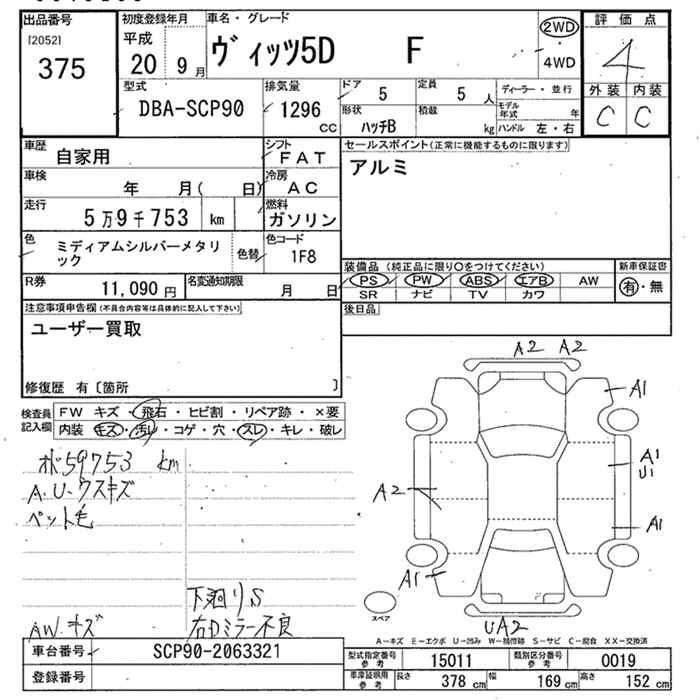 出品番号 初度登録年月 車名・グレード 評価点
[2052] 平成 2WD
375 20 9月 ヴィッツ5D F 4WD 4
型式 排気量 ドア 定員 ディーラー・並行 外装 内装
DBA-SCP90 1296 cc 5 5人 モデル年式 年 C C
形状 積載
ハッチB kg ハンドル 左・右
車歴 シフト セールスポイント(正常に機能するものに限ります)
自家用 FAT アルミ
車検 冷房
年 月( 日) AC
走行 燃料
5万9千753 km ガソリン
色 色替 色コード
ミディアムシルバーメタリ
ック 1F8
装備品(純正品に限り○をつけてください) 新車保証書
R券 名変通知期限 PS PW ABS エアB AW 有・無
11,090円 月 日 SR ナビ TV カワ
注意事項申告欄(不具合内容等は具体的に記入して下さい) 後日品
ユーザー買取
修復歴 有〔箇所 〕
検査員 FW キズ・飛石・ヒビ割・リペア跡・×要
記入欄 内装 キズ・汚れ・コゲ・穴・スレ・キレ・破レ
A2 A2
A1
ポ59753 km
A1
U1
A.U.ウスキズ
A2
ペット毛
A1
A1
下廻りS
スペア
AW.キズ
右Dミラー不良
UA2
A-キズ E-エクボ U-凹み W-補修跡 S-サビ C-腐食 XX-交換済
車台番号 SCP90-2063321 型式指定番号 参考 15011 類別区分番号 参考 0019
登録番号 車庫証明用 参考 長さ 378 cm 幅 169 cm 高さ 152 cm